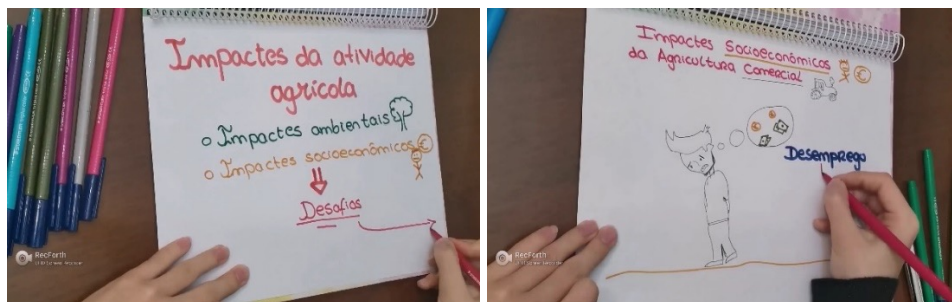 Impactes da atividade
agrícola
o Impactes ambientais
o Impactes socioeconômicos €
Desafios
RecForth
Impactes Socioeconômicos
da Agricultura Comercial
€
Desemprego
RecForth